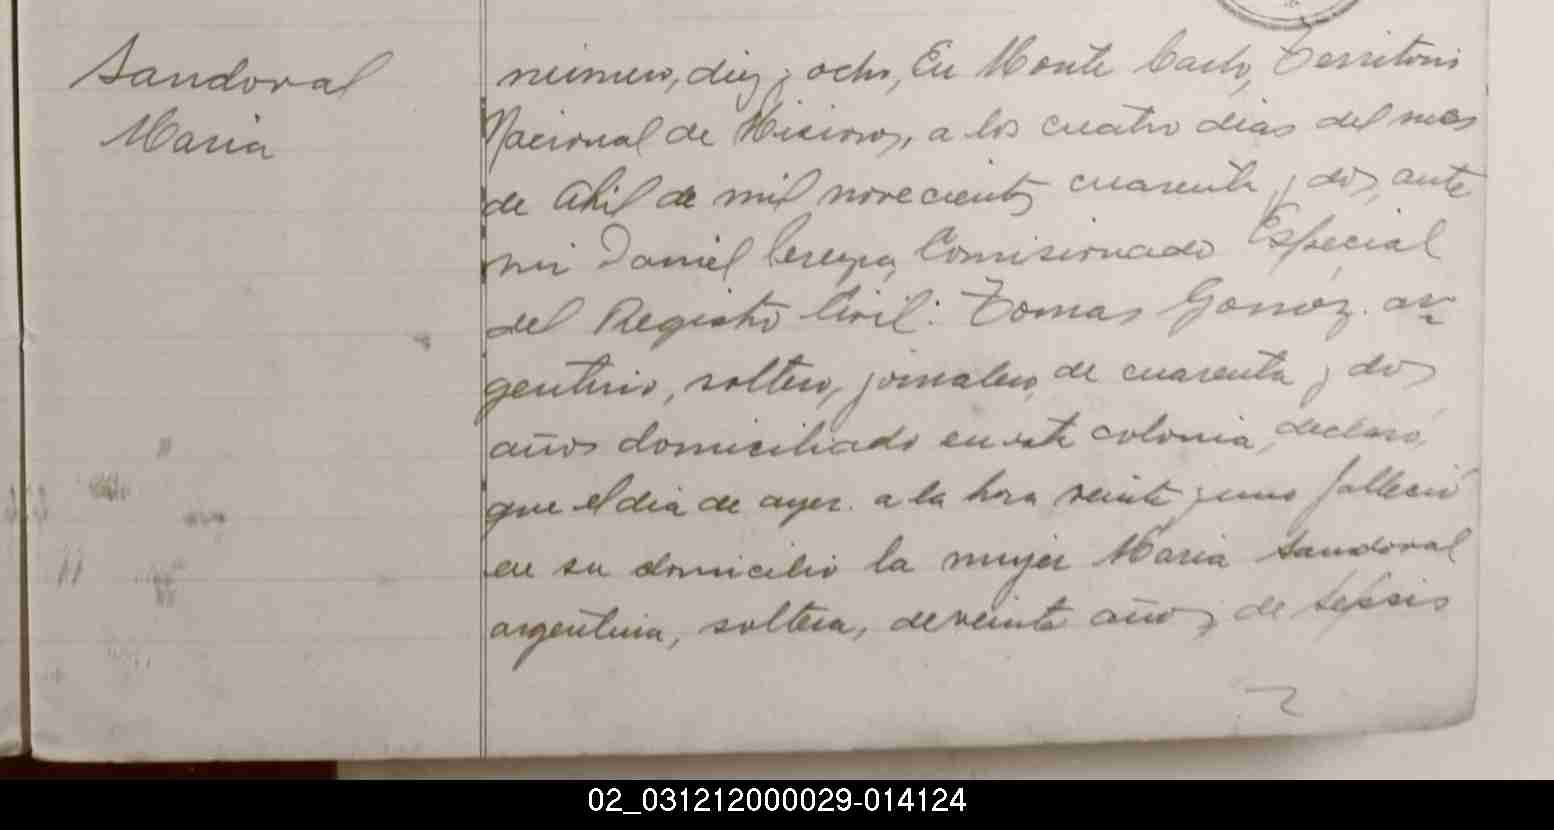 Sandoval
Maria
número, diez y ocho, En Monte Carlo, Territorio
Nacional de Misiones, a los cuatro dias del mes
de Abril de mil novecientos cuarenta y dos, ante
mi Daniel Comisionado Especial
del Registro Civil: Tomas Gomez. ar-
gentino, soltero, jornalero, de cuarenta y dos
años domiciliado en esta colonia, declaró,
que el dia de ayer. a la hora veinte y uno falleció
en su domicilio la mujer Maria Sandoval
argentina, soltera, de veinte años, de sepsis
02_031212000029-014124